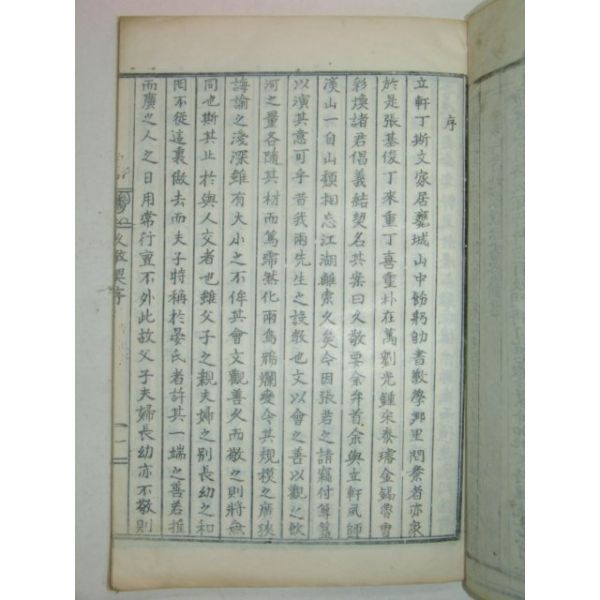 序
立軒丁斯文家居甕城山中飭躬劬書敎學鄕里問業者亦衆
於是張基俊丁來重丁喜重朴在萬劉光鍾宋泰璿金錫魯曺
彩煥諸君倡義結契名其案曰久敬要余弁首余與立軒夙師
溪山一自山頹相忘江湖離索久矣今因張君之請竊付算篹
以演其意可乎昔我兩先生之設敎也文以會之善以觀之飮
河之量各隨其材而篤濡然化雨鳥鵶爛變今其規模之廣狹
誨諭之淺深雖有大小之不侔其會文觀善久而敬之則將無
同也斯其止於與人交者也雖父子之親夫婦之別長幼之和
罔不從這裏做去而夫子特稱於晏氏者許其一端之善若推
而廣之人之日用常行宜不外此故父子夫婦長幼亦不敬則
久敬契序
一